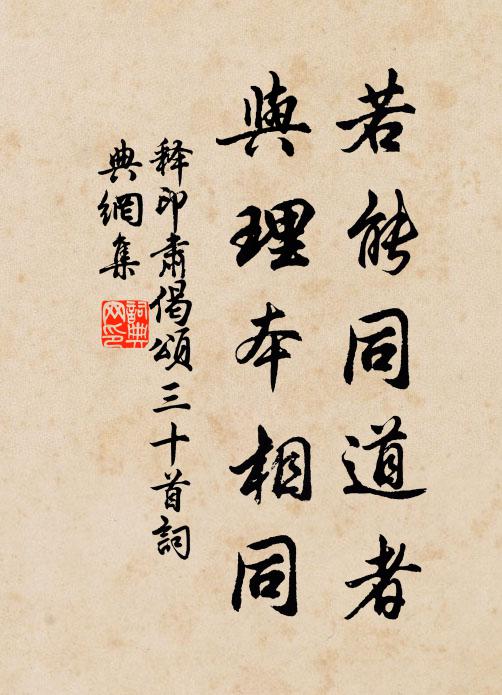 若能同道者
與理本相同
释印肅偈頌三十首詞
典網集
詞典网印